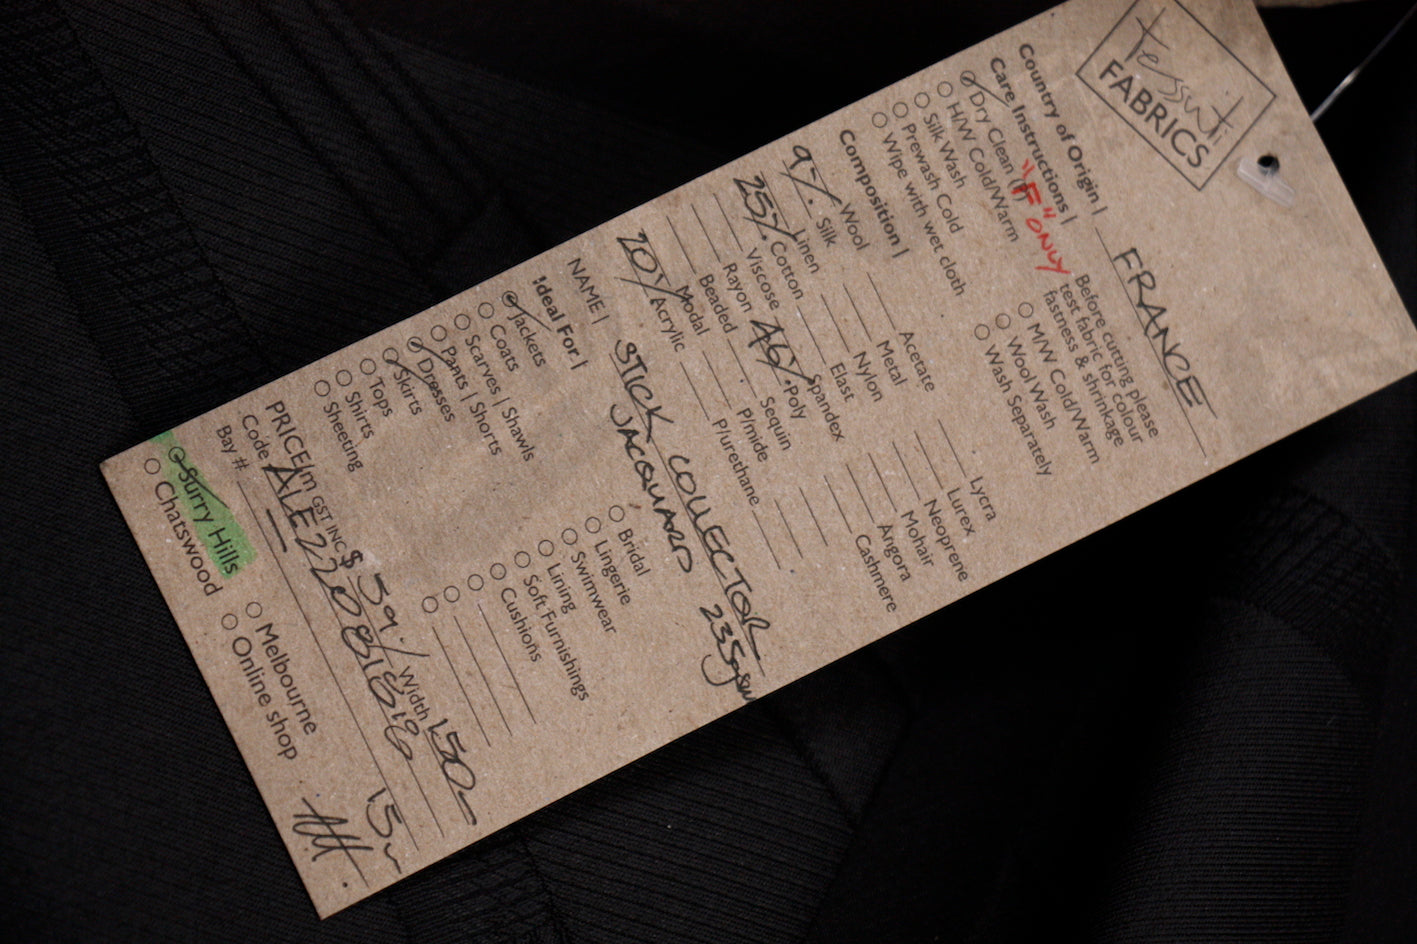 tessuti
FABRICS
Country of Origin | FRANCE
Care Instructions |
Dry Clean "F" ONLY
H/W Cold/Warm
Silk Wash
Prewash Cold
Wipe with wet cloth
Before cutting please
test fabric for colour
fastness & shrinkage
M/W Cold/Warm
Wool Wash
Wash Separately
Composition |
Wool Acetate Lycra
9% Silk Metal Lurex
Linen Nylon Neoprene
25% Cotton Elast Mohair
Viscose Spandex Angora
Rayon 46% Poly Cashmere
Beaded Sequin
Modal P/mide
20% Acrylic P/urethane
NAME | STICK COLLECTOR
JACQUARD 235gsm
Ideal For |
Jackets
Coats
Scarves | Shawls
Pants | Shorts
Dresses
Skirts
Tops
Shirts
Sheeting
Bridal
Lingerie
Swimwear
Lining
Soft Furnishings
Cushions
PRICE|m GST INC $ Width 150
Code
Bay #
Surry Hills
Chatswood
Melbourne
Online shop